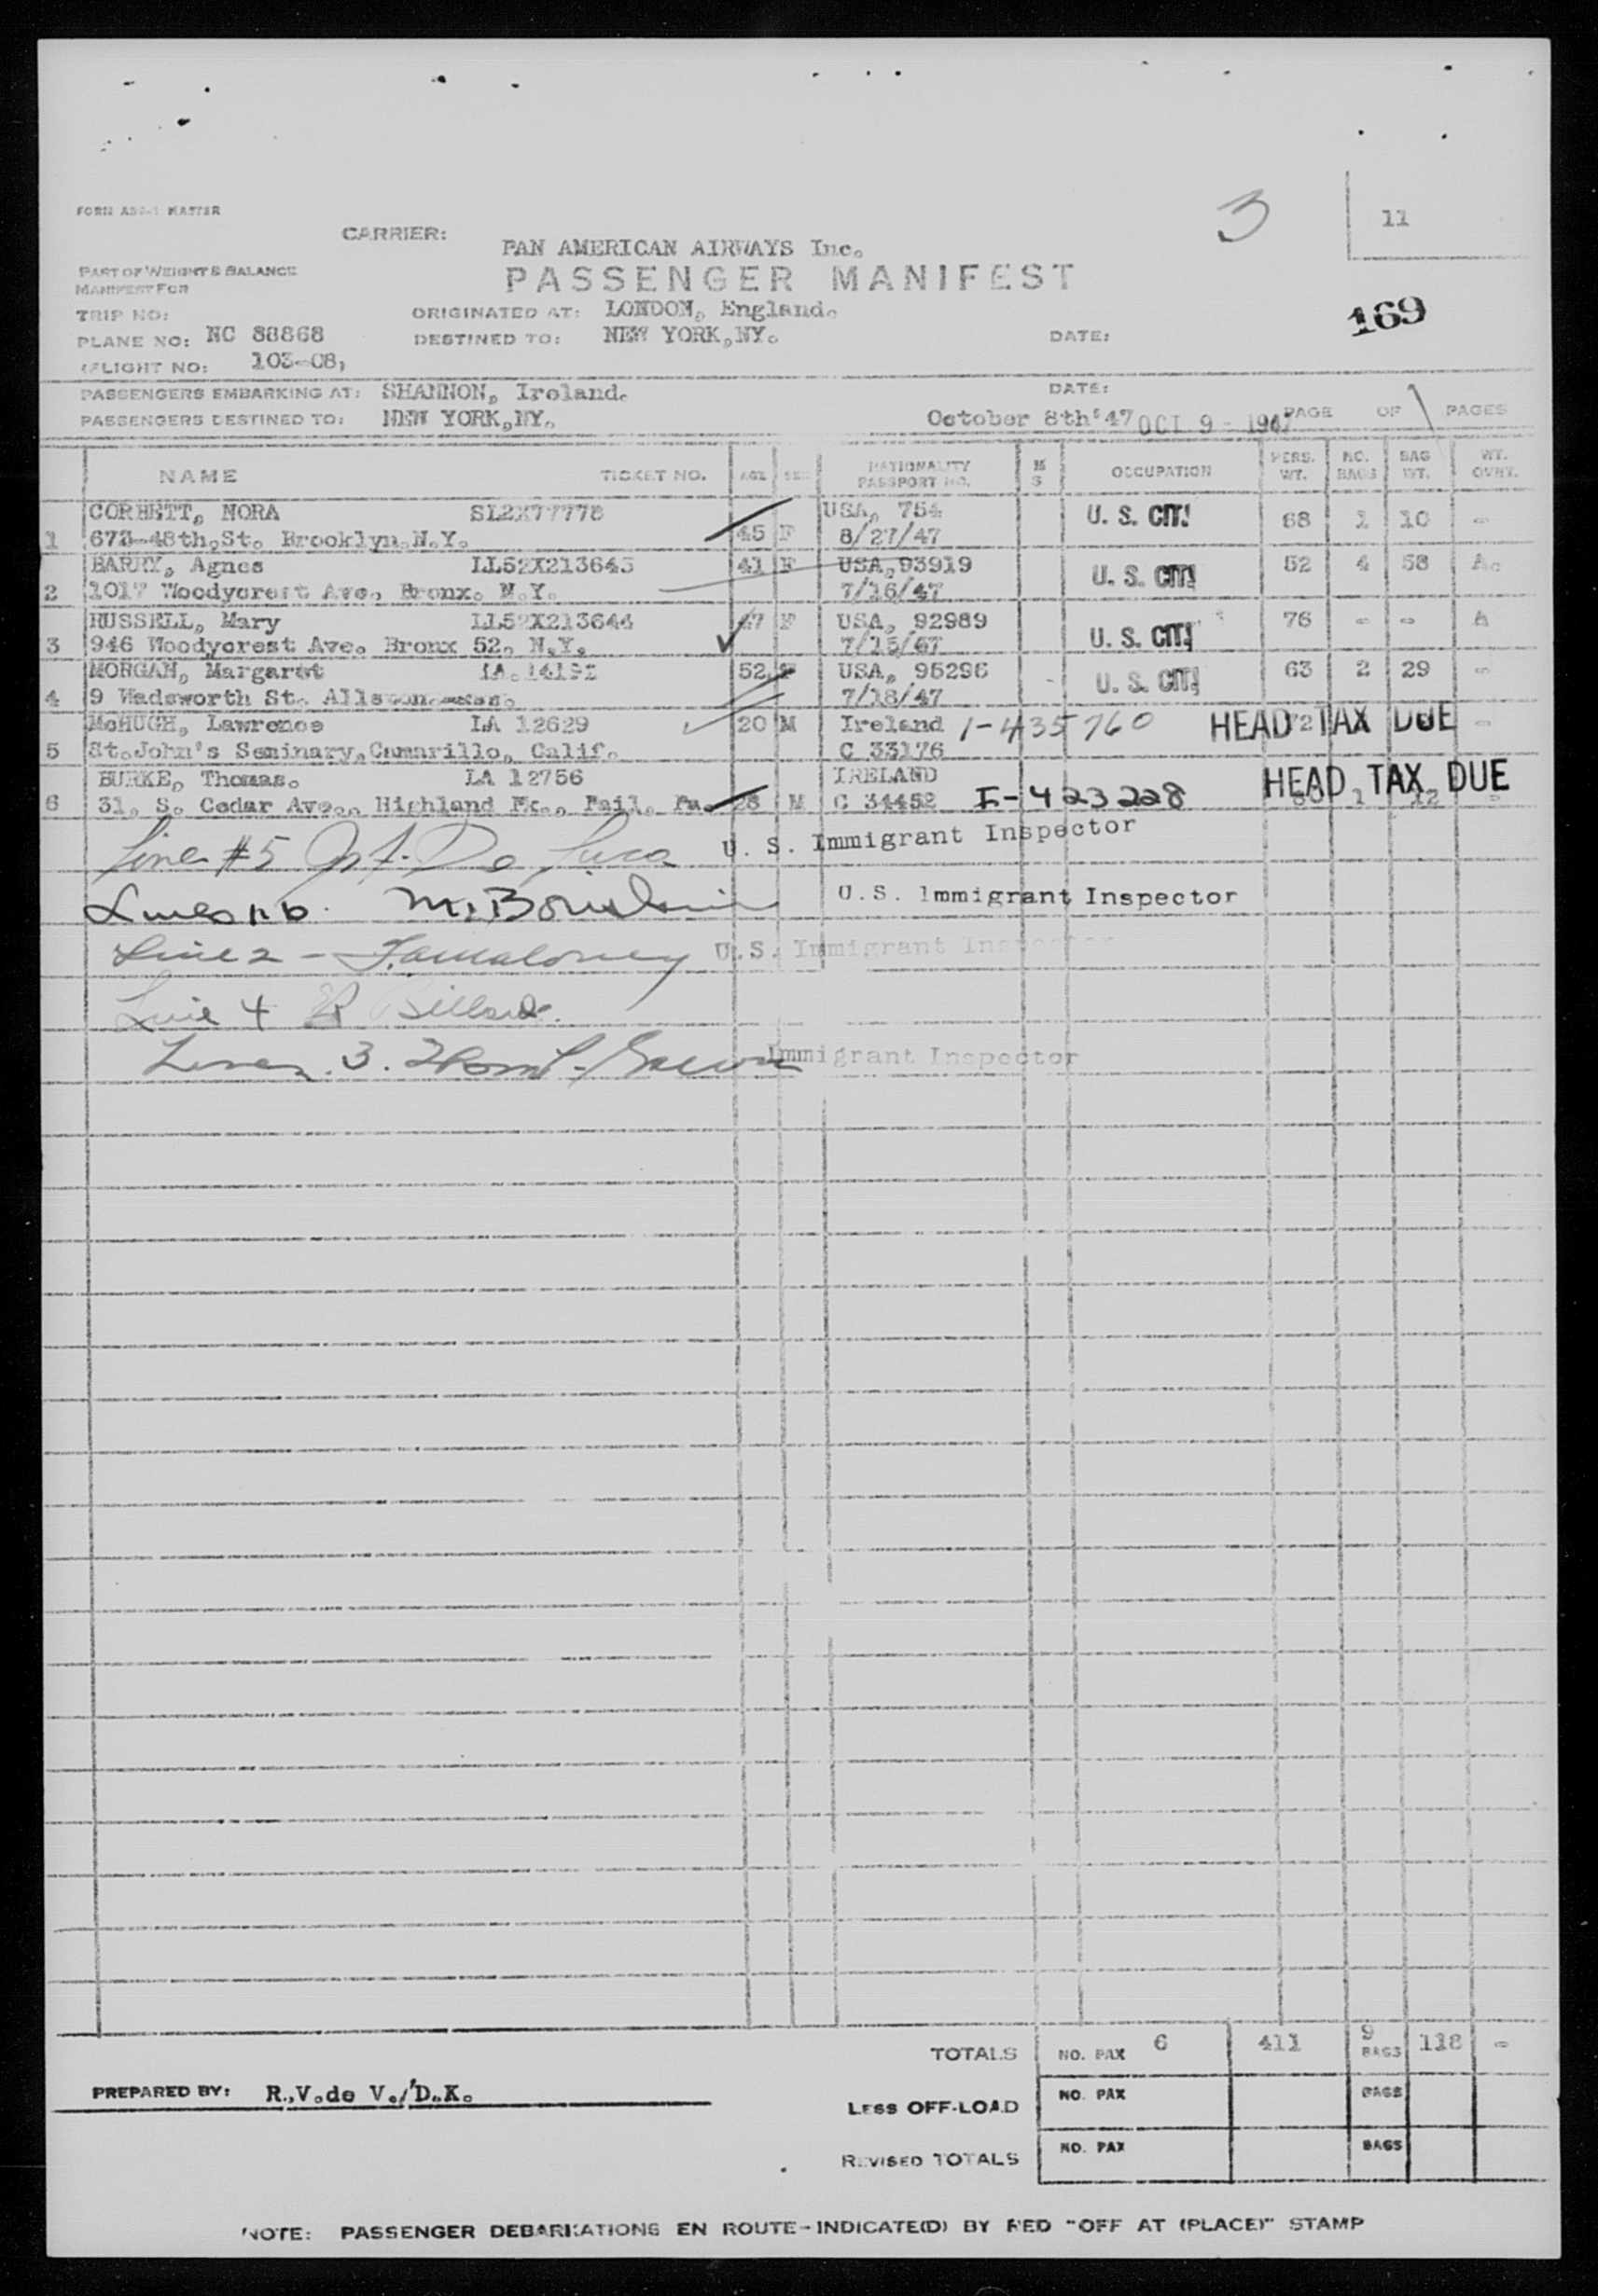 FORM MASTER
3
11
CARRIER:
PAN AMERICAN AIRWAYS Inc.
PART OF WEIGHT & BALANCE
PASSENGER MANIFEST
MANIFEST FOR
TRIP NO:
ORIGINATED AT: LONDON, England.
169
PLANE NO: NC 88868
DESTINED TO: NEW YORK,NY.
DATE:
FLIGHT NO: 103-08,
PASSENGERS EMBARKING AT: SHANNON, Ireland.
DATE:
PASSENGERS DESTINED TO: NEW YORK,NY.
October 8th'47 OCT 9 - 1947 PAGE OF PAGES
NAME TICKET NO. AGE SEX NATIONALITY PASSPORT NO. M S OCCUPATION PERS. WT. NO. BAGS BAG WT. WT. OVRT.
CORBETT, NORA SL2X77778 USA, 754 U. S. CIT. 68 1 10 -
1 673-48th,St. Brooklyn,N.Y. 45 F 8/27/47
BARRY, Agnes LL52X213645 41 F USA,93919 U. S. CIT. 52 4 58 A.
2 1017 Woodycrest Ave., Bronx. N.Y. 7/16/47
RUSSELL, Mary LL52X213644 47 F USA, 92989 U. S. CIT. 76 - - A
3 946 Woodycrest Ave. Bronx 52, N.Y. 7/15/47
MORGAN, Margaret LA 14192 52 F USA, 95296 U. S. CIT. 63 2 29 -
4 9 Wadsworth St. Allston 7/18/47
McHUGH, Lawrence LA 12629 20 M Ireland 1-435760 HEAD TAX DUE -
5 St.John's Seminary,Camarillo, Calif. C 33176
BURKE, Thomas. LA 12756 IRELAND HEAD TAX DUE
6 31, S. Cedar Ave., Highland Pk., Pa. 28 M C 34452 I-423228
Line #5 De Luca U. S. Immigrant Inspector
Lines 1-6 U.S. Immigrant Inspector
Line 2 - Maloney U.S. Immigrant Inspector
Line 4
Line 3. Immigrant Inspector
TOTALS NO. PAX 6 411 9 BAGS 118 -
PREPARED BY: R.,V.de V./D.K.
LESS OFF-LOAD NO. PAX BAGS
REVISED TOTALS NO. PAX BAGS
NOTE: PASSENGER DEBARKATIONS EN ROUTE-INDICATE(D) BY RED "OFF AT (PLACE)" STAMP